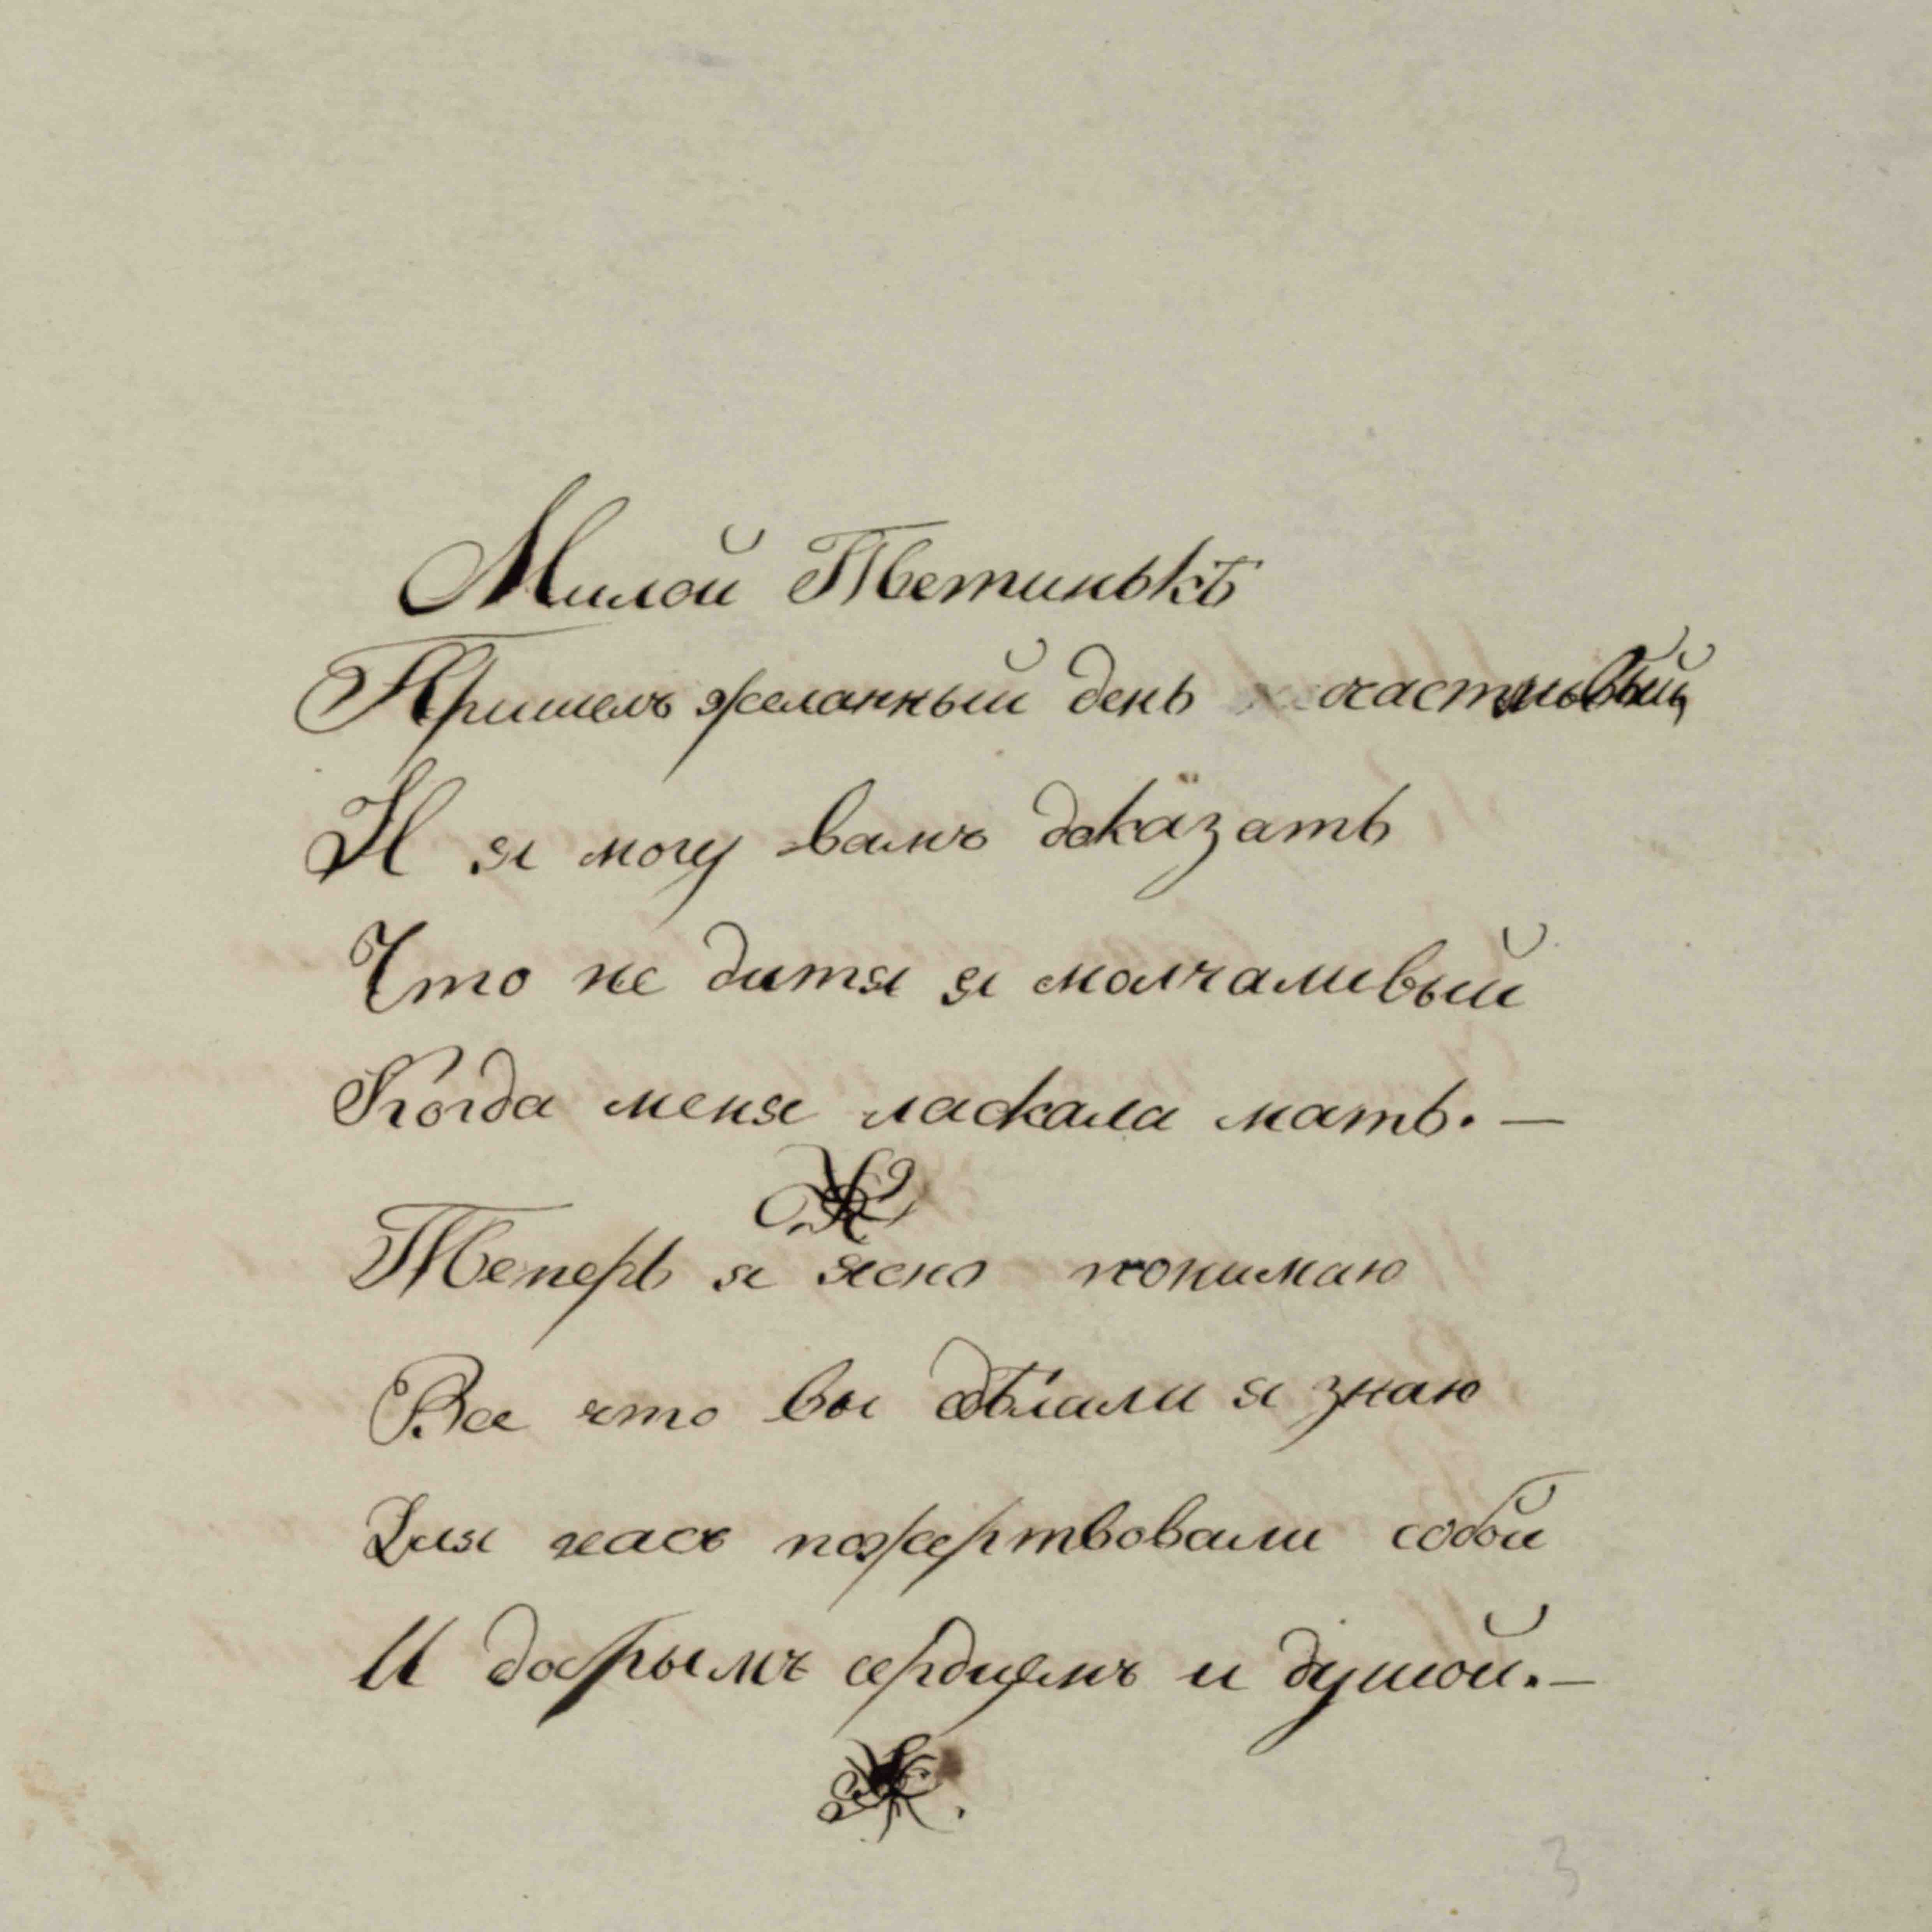 Милой Тетинькѣ
Пришелъ желанный день счастливый
И я могу вамъ доказать
Что не дитя я молчаливый
Когда меня ласкала мать. —
Теперь я ясно понимаю
Все что вы дѣлали я знаю
Для насъ пожертвовали собой
И добрымъ сердцемъ и душой. —
3